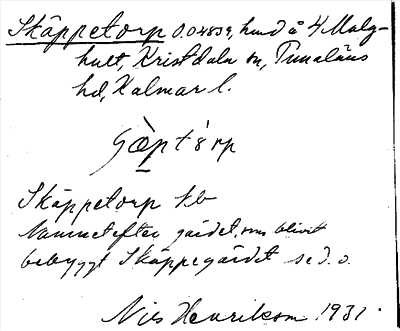 Skäppetorp 0.04839, hmd å 4 Malg-
hult, Kristdala sn, Tunaläns
hd, Kalmar l.
Skäppetorp tb
Namnet efter gärdet, som blivit
bebyggt Skäppegärdet se d. o.
Nils Henriksson 1931.